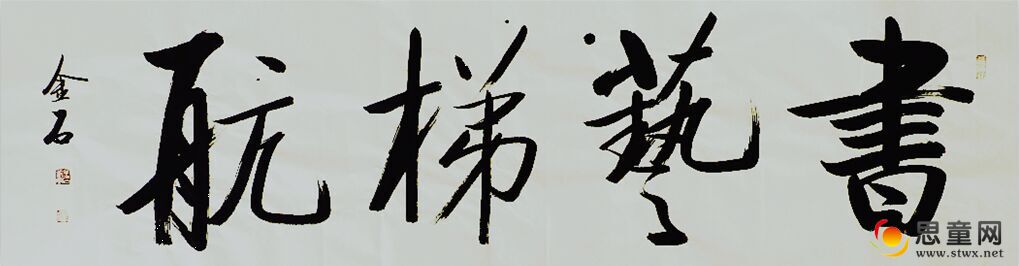 書藝梯航
金石
思童网
www.stwx.net